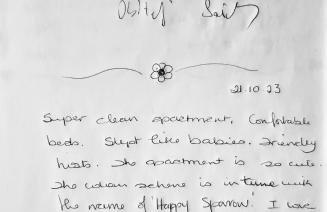 21.10.23
Super clean apartment. Comfortable
beds. Slept like babies. Friendly
hosts. The apartment is so cute.
The colour scheme is in tune with
the name of 'Happy Sparrow'. I love